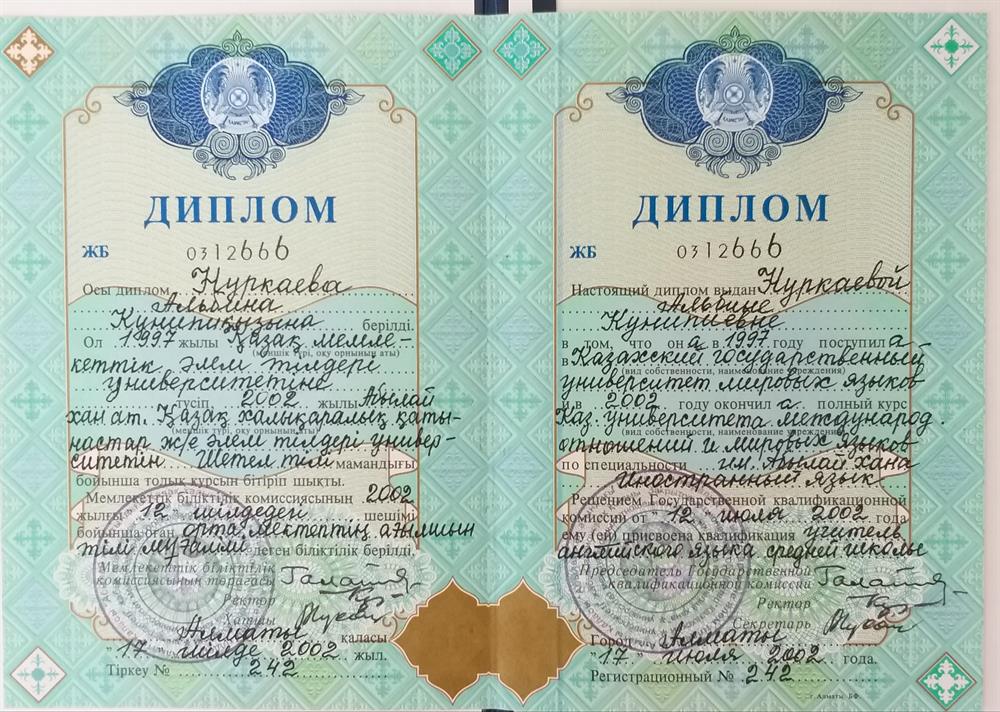 ДИПЛОМ
ЖБ 0312666
Осы диплом Нуркаева
Альбина
Кунипиқызына берілді.
Ол 1997 жылы Қазақ мемле-
(меншік түрі, оқу орнының аты)
кеттік әлем тілдері
университетіне
түсіп 2002 жылы Абылай
хан ат. Қазақ халықаралық қаты-
(меншік түрі, оқу орнының аты)
настар ж/е әлем тілдері универ-
ситетін Шетел тілі мамандығы
бойынша толық курсын бітіріп шықты.
Мемлекеттік біліктілік комиссиясының 2002
жылғы "12" шілдедегі шешімі
бойынша оған орта мектептің ағылшын
тілі мұғалімі деген біліктілік берілді.
Мемлекеттік біліктілік
комиссиясының төрағасы
Ректор
Хатшы
Алматы қаласы
"17" шілде 2002 жыл.
Тіркеу № 242
ДИПЛОМ
ЖБ 0312666
Настоящий диплом выдан Нуркаевой
Альбине
Кунипиевне
в том, что он а в 1997 году поступил а
в Казахский государственный
(вид собственности, наименование учреждения)
университет мировых языков
и в 2002 году окончил а полный курс
Каз. университета международ.
(вид собственности, наименование учреждения)
отношений и мировых языков
по специальности им. Абылай хана
Иностранный язык
Решением Государственной квалификационной
комиссии от "12" июля 2002 года
ему (ей) присвоена квалификация учитель
английского языка средней школы
Председатель Государственной
квалификационной комиссии
Ректор
Секретарь
Город Алматы
"17" июля 2002 года.
Регистрационный № 242
г. Алматы. БФ.